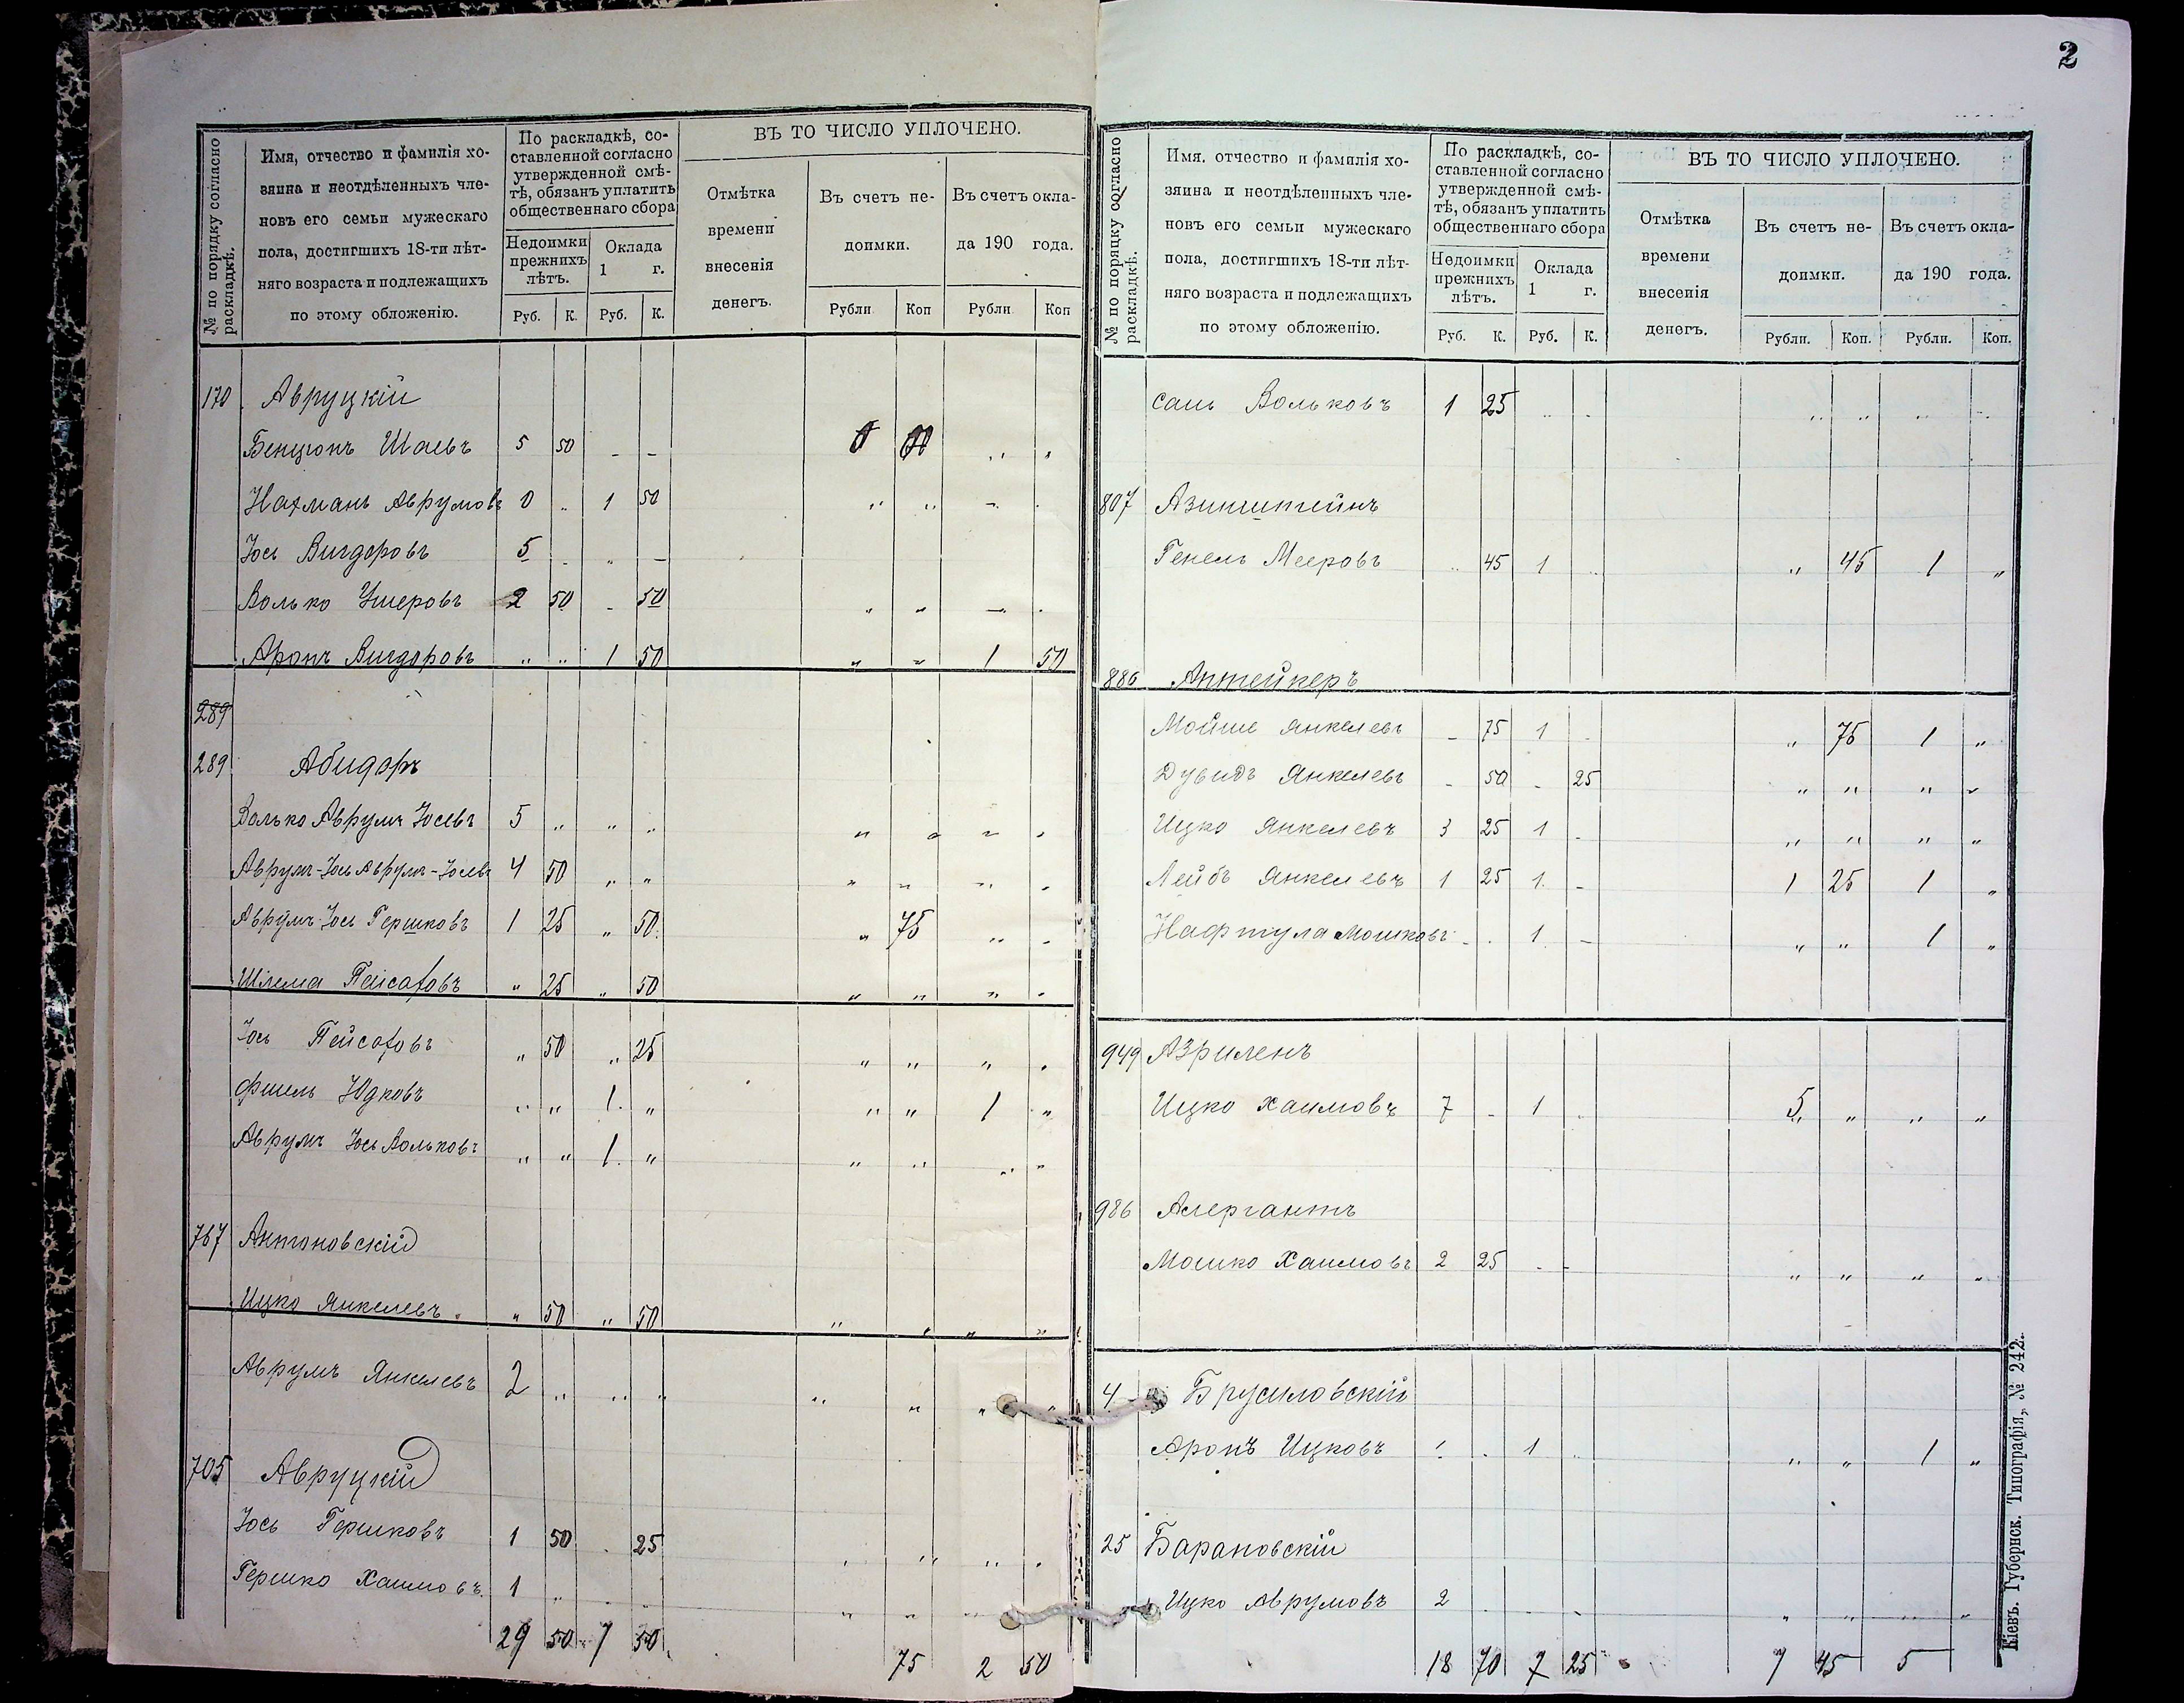 2
№ по порядку согласно раскладкѣ.
Имя, отчество и фамилія хо-
зяина и неотдѣленныхъ чле-
новъ его семьи мужескаго
пола, достигшихъ 18-ти лѣт-
няго возраста и подлежащихъ
по этому обложенію.
По раскладкѣ, со-
ставленной согласно
утвержденной смѣ-
тѣ, обязанъ уплатить
общественнаго сбора
Недоимки прежнихъ лѣтъ.
Оклада 1 г.
Руб. К. Руб. К.
ВЪ ТО ЧИСЛО УПЛОЧЕНО.
Отмѣтка
времени
внесенія
денегъ.
Въ счетъ не-
доимки.
Въ счетъ окла-
да 190 года.
Рубли Коп Рубли Коп
170 Авруцкій
Бенціонъ Шаевъ 5 50 - -
Нахманъ Аврумовъ 0 „ 1 50
Іось Вигдоровъ 5 - „ -
Волько Ушеровъ 2 50 - 50 „ „ - .
Аронъ Вигдоровъ „ „ 1 50 „ „ 1 50
289
289 Абидоръ
Волько Аврумъ Іосевъ 5 „ „ „ „ „ „ „
Аврум-Іось Аврум-Іосевъ 4 50 „ „ „ „ „ „
Аврумъ-Іось Гершковъ 1 25 „ 50 „ 75 „ „
Шлема Пейсаховъ „ 25 „ 50 „ „ „ „
Іось Пейсаховъ „ 50 „ 25 „ „ „ „
Фишель Юдковъ „ „ 1 „ „ „ 1 „
Аврумъ Іось Вольковъ „ „ 1 „ „ „ „ „
767 Антоновскій
Ицко Янкелевъ „ 50 „ 50 „ „ „ „
Аврумъ Янкелевъ 2 „ „ „ „ „ „ „
705 Авруцкій
Іось Гершковъ 1 50 . 25 „ „ „ „
Гершко Хаимовъ 1 „ „ „ „ „ „ „
29 50 7 50 75 2 50
№ по порядку согласно раскладкѣ.
Имя, отчество и фамилія хо-
зяина и неотдѣленныхъ чле-
новъ его семьи мужескаго
пола, достигшихъ 18-ти лѣт-
няго возраста и подлежащихъ
по этому обложенію.
По раскладкѣ, со-
ставленной согласно
утвержденной смѣ-
тѣ, обязанъ уплатить
общественнаго сбора
Недоимки прежнихъ лѣтъ.
Оклада 1 г.
Руб. К. Руб. К.
ВЪ ТО ЧИСЛО УПЛОЧЕНО.
Отмѣтка
времени
внесенія
денегъ.
Въ счетъ не-
доимки.
Въ счетъ окла-
да 190 года.
Рубли. Коп. Рубли. Коп.
Вольковъ 1 25 „ „ „ „ „ „
807 Азинштейнъ
Генель Мееровъ „ 45 1 „ „ 45 1 „
886 Аптейкеръ
Мойше Янкелевъ - 75 1 - „ 75 1 „
Дувидъ Янкелевъ - 50 - 25 „ „ „ „
Ицко Янкелевъ 3 25 1 - „ „ „ „
Лейбъ Янкелевъ 1 25 1 - 1 25 1 „
Нафтула Мошковъ - . 1 - „ „ 1 „
949 Азриленъ
Ицко Хаимовъ 7 - 1 . 5 „ „ „
986 Алергантъ
Мошко Хаимовъ 2 25 - - „ „ „ „
4 Брусиловскій
Аронъ Ицковъ . . 1 . „ „ 1 „
25 Барановскій
Ицко Аврумовъ 2 . . . „ „ „ „
18 70 7 25 7 45 5
Кіевъ. Губернск. Типографія, № 242.